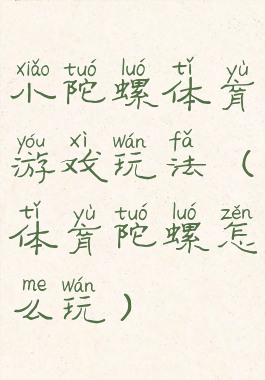 xiǎo tuó luó tǐ yù
小陀螺体育
yóu xì wán fǎ
游戏玩法（
tǐ yù tuó luó zěn
体育陀螺怎
me wán
么玩）